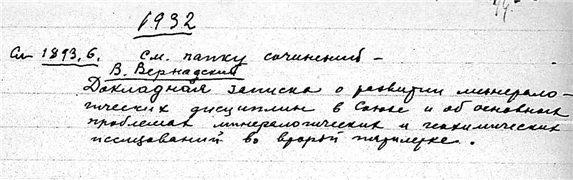 1932
См 1893, б. См. папку сочинений –
В. Вернадский
Докладная записка о развитии минерало-
гических дисциплин в Союзе и об основных
проблемах минералогических и геохимических
исследований во второй пятилетке.